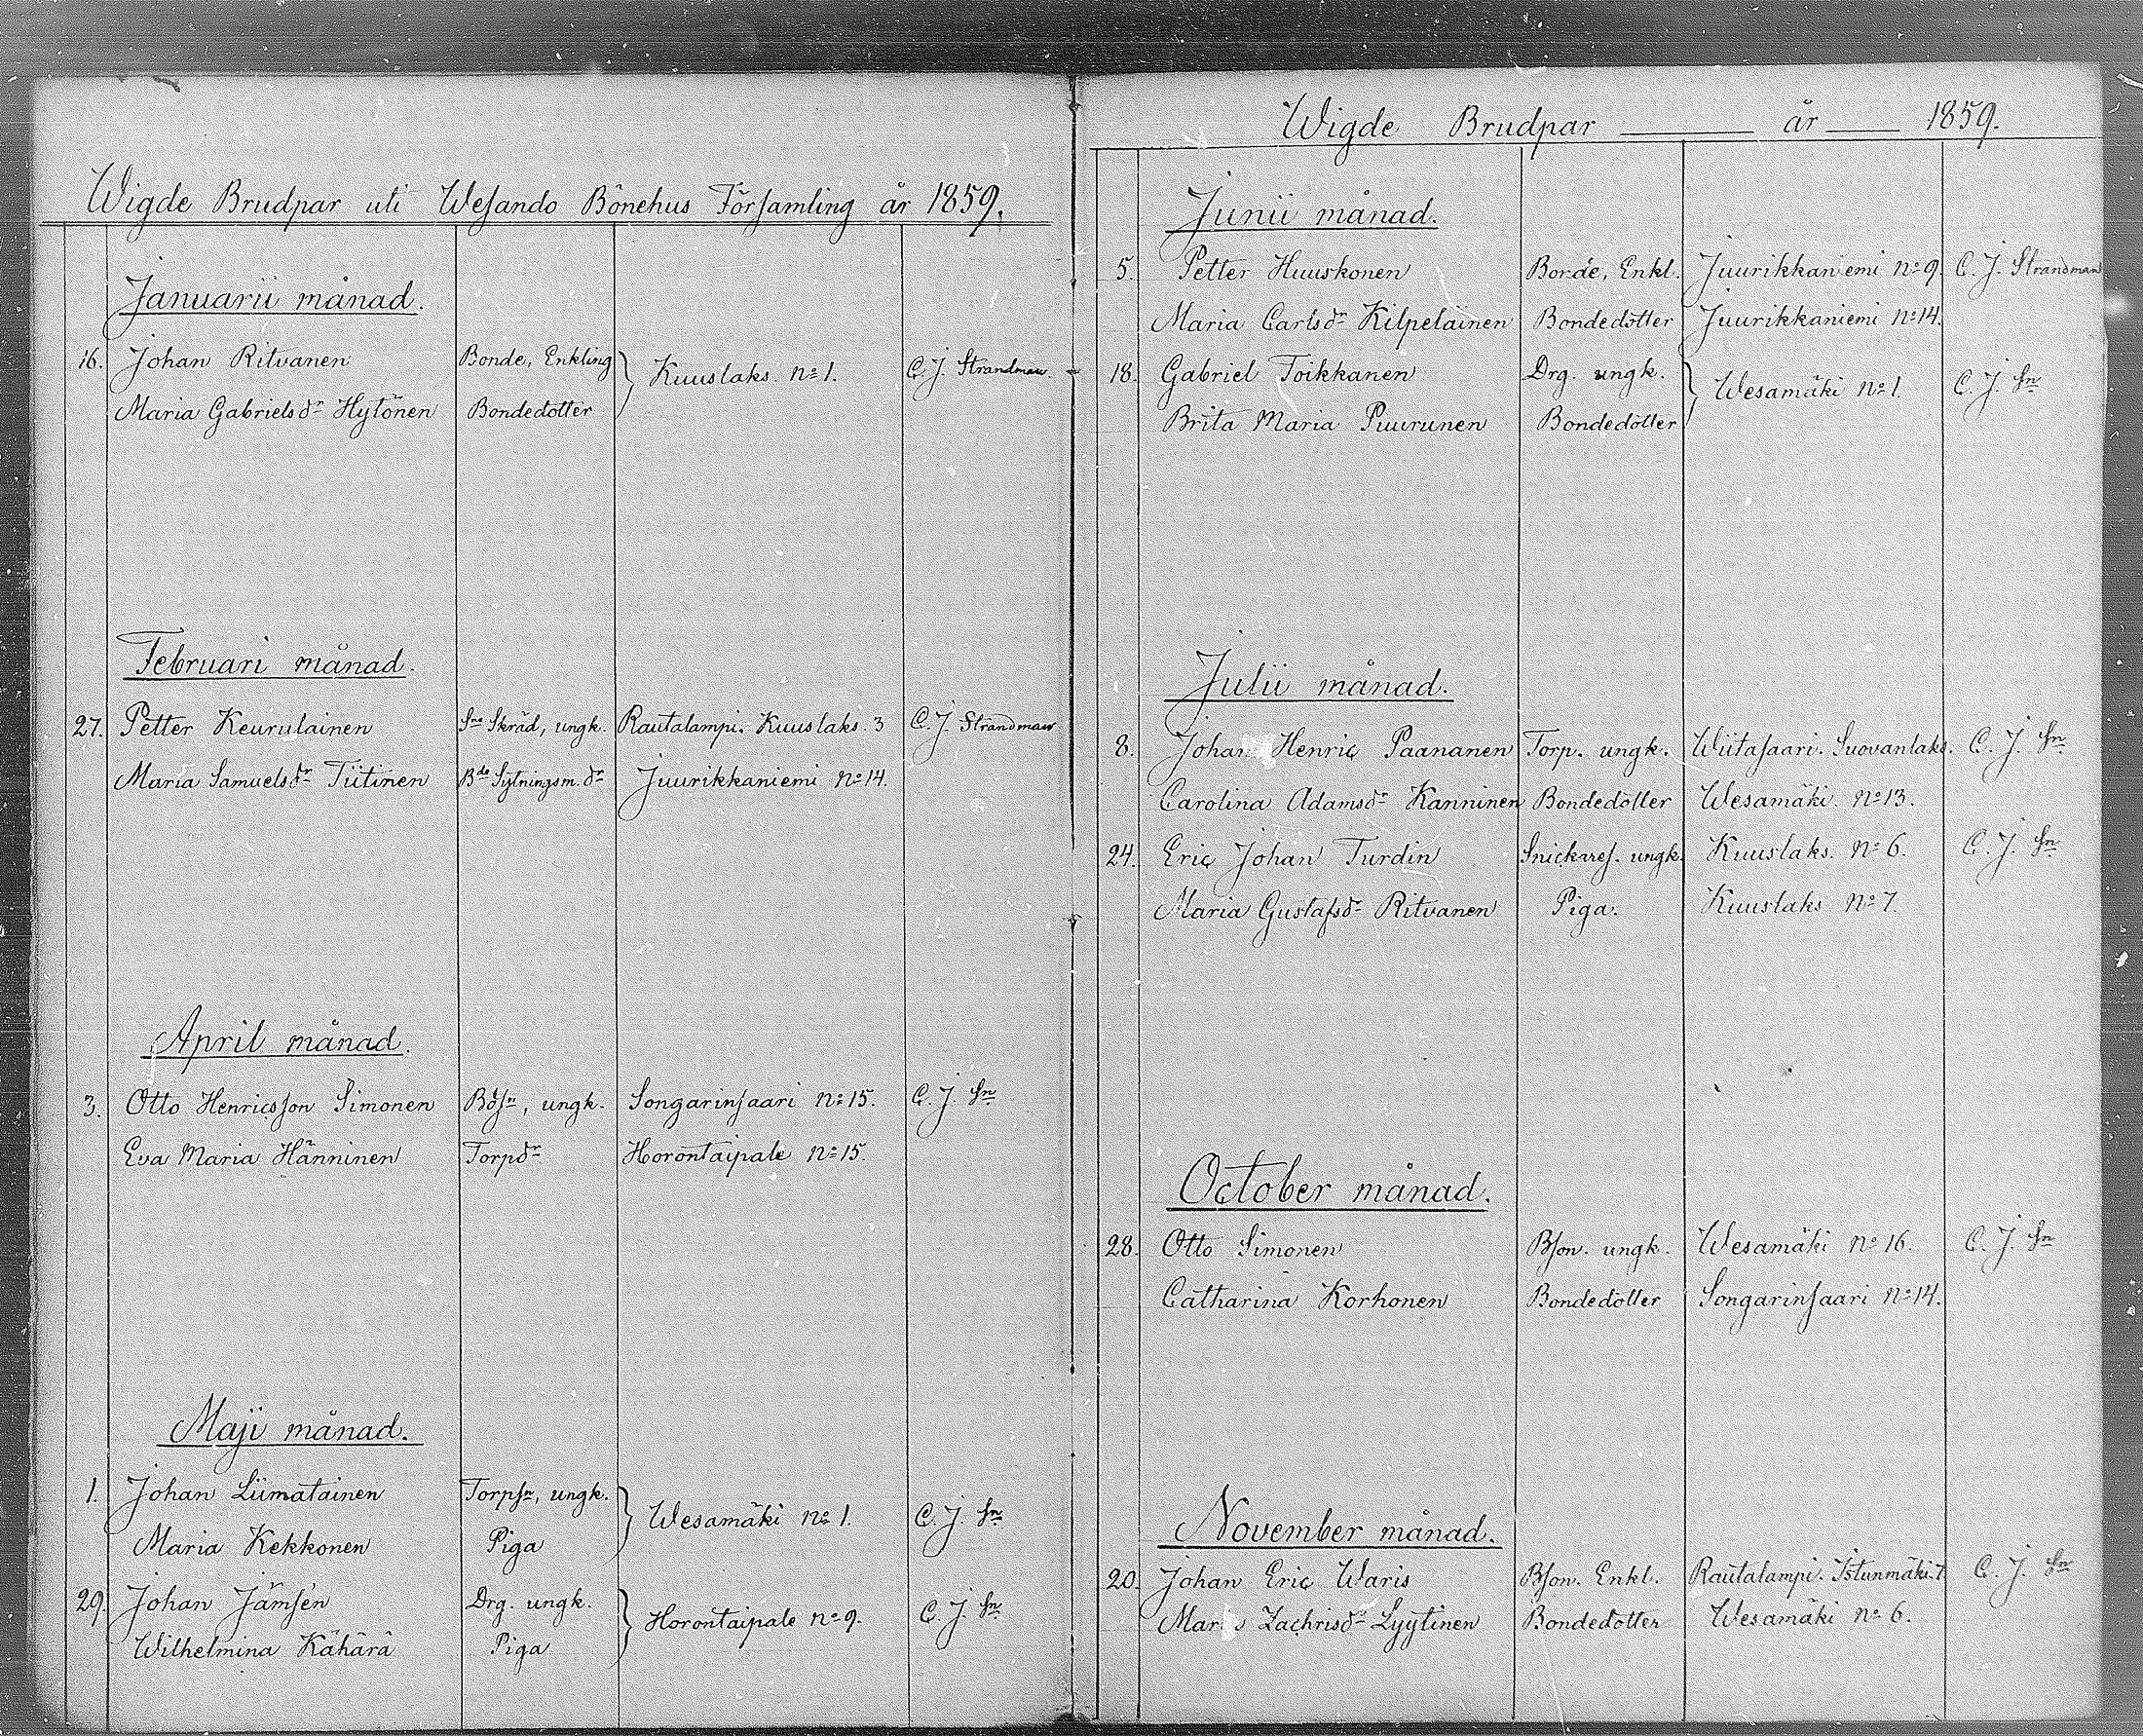 Wigde Brudpar uti Wesando Bönehus Församling år 1859.
Januarii månad.
16. Johan Ritvanen Bonde, Enkling } Kuuslaks. No 1. C. J. Strandman.
Maria Gabrielsdr Hytönen Bondedotter
Februari månad.
27. Petter Keurulainen Sne Skräd, ungk. Rautalampi. Kuuslaks. 3 C. J. Strandman
Maria Samuelsdr Tiitinen Bde Sytningsm. dr Juurikkaniemi No 14.
April månad.
3. Otto Henricsson Simonen Bdsn, ungk. Songarinsaari No 15. C. J. Sn
Eva Maria Hänninen Torpdr Horontaipale No 15.
Maji månad.
1. Johan Liimatainen Torpsn, ungk. } Wesamäki No 1. C. J. Sn
Maria Kekkonen Piga
29. Johan Jämsén Drg. ungk. } Horontaipale No 9. C. J. Sn
Wilhelmina Kähärä Piga
Wigde Brudpar år 1859.
Junii månad.
5. Petter Huuskonen Bonde, Enkl. Juurikkaniemi No 9. C. J. Strandman
Maria Carlsdr Kilpeläinen Bondedotter Juurikkaniemi No 14.
18. Gabriel Toikkanen Drg. ungk. } Wesamäki No 1. C. J. Sn
Brita Maria Puurunen Bondedotter
Julii månad.
8. Johan Henric Paananen Torp. ungk. Wiitasaari. Suovanlaks. C. J. Sn
Carolina Adamsdr Kanninen Bondedotter Wesamäki. No 13.
24. Eric Johan Turdin Snickares. ungk. Kuuslaks. No 6. C. J. Sn
Maria Gustafsdr Ritvanen Piga. Kuuslaks No 7.
October månad.
28. Otto Simonen Bson. ungk. Wesamäki No 16. C. J. Sn
Catharina Korhonen Bondedotter Songarinsaari No 14.
November månad.
20. Johan Eric Waris Bson. Enkl. Rautalampi. Istunmäki. 7 C. J. Sn
Zachrisdr Lyytinen Bondedotter Wesamäki No 6.